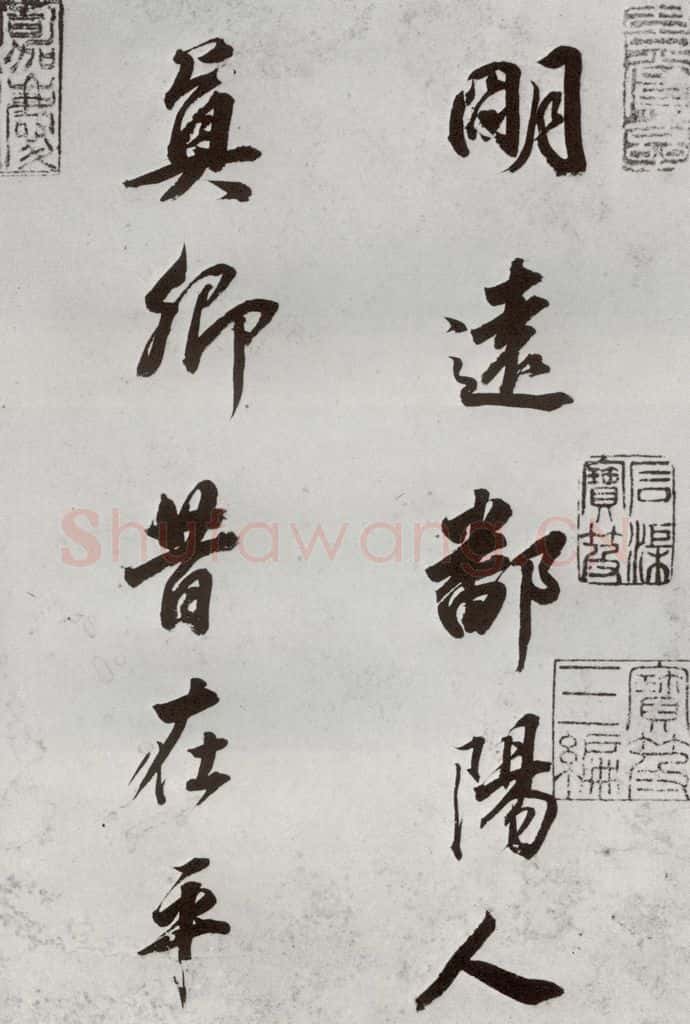 明遠鄱陽人
真卿昔在平
石渠寶笈
寶笈三編
Shufawang.cn